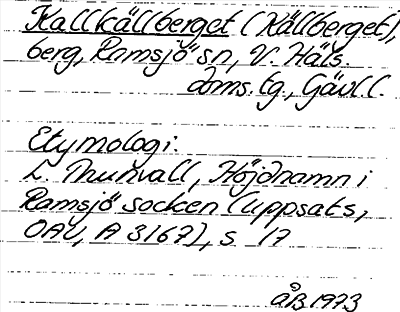 Kallkällberget (Källberget),
berg, Ramsjö sn, V. Häls.
doms.tg., Gävl.l.
Etymologi.
L. Thunvall, Höjdnamn i
Ramsjö socken (uppsats,
OAU, A 3167), s 17
ÅB 1973